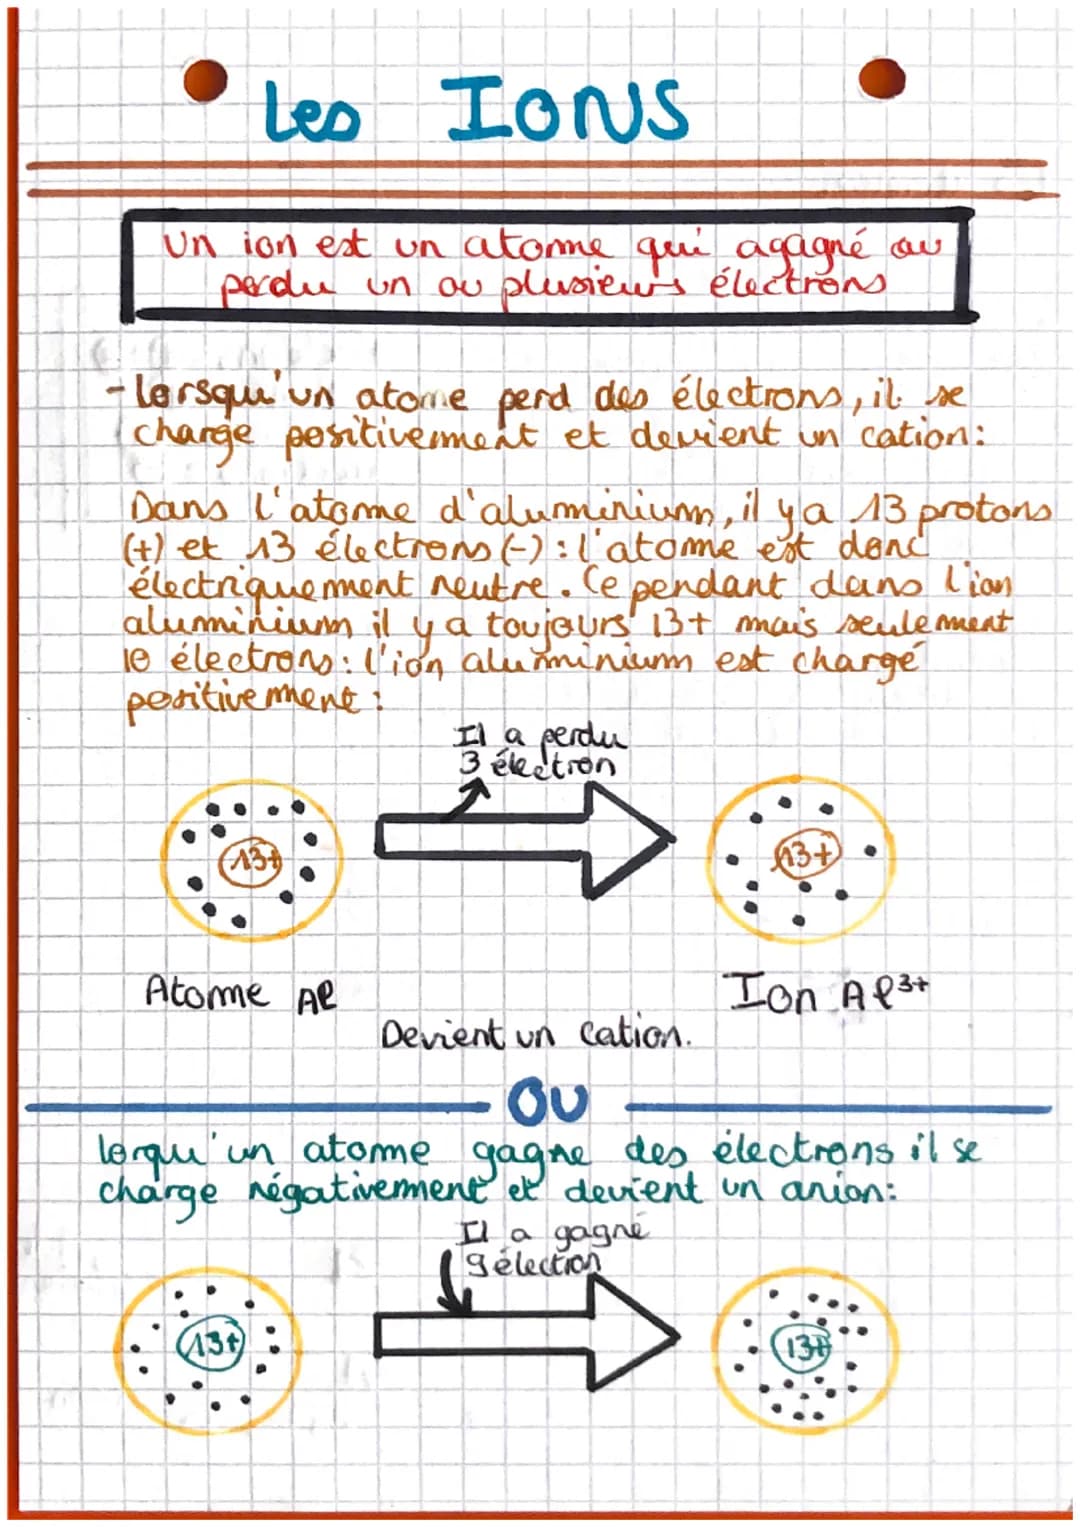 Les IONS
Un ion est un atome qui a gagné ou
perdu un ou plusieurs électrons
- lorsqu'un atome perd des électrons, il se
charge positivement et devient un cation:
Dans l'atome d'aluminium, il y a 13 protons
(+) et 13 électrons (-) : l'atome est donc
électriquement neutre. Cependant dans l'ion
aluminium il y a toujours 13+ mais seulement
10 électrons: l'ion aluminium est chargé
positivement :
Il a perdu
3 électron
13+
13+
Atome Al
Ion Al³⁺
Devient un Cation.
OU
lorqu'un atome gagne des électrons il se
charge négativement et devient un anion:
Il a gagné
9 élection
13+
13+